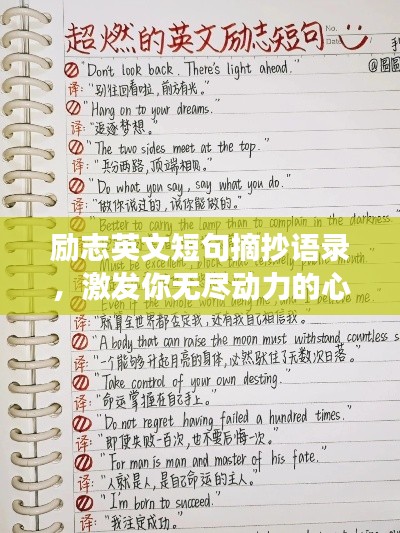 超燃的英文励志短句
No.
Date
手
@圖圖
"Don't look back. There's light ahead."
译:"别往回看啦,前方有光。"
"Hang on to your dreams."
译:"追逐梦想。"
"The two sides meet at the top.
译:"兵分两路,顶端相见。"
"Do what you say, say what you do.
译:"做你说过的,说你能做的。"
"Better to carry the lamp than to complain in the darkness.
励志英文短句摘抄语录
，激发你无尽动力的心
译:"就算全世界都否定我,还有我自己相信我。"
"A body that can raise the moon must withstand countless s
"一个能够升起月亮的身体,必然驮住了无数次日落。"
"Take control of your own desting.
译:"命运掌握在自己手上。"
"Do not regret having failed a hundred times.
译:"即使失败一百次,也不要后悔一次。"
"For man is man and master of his fate."
译:"人就是人,是自己命运的主人。"
"I'm born to succeed."
译:"我注定成功。"